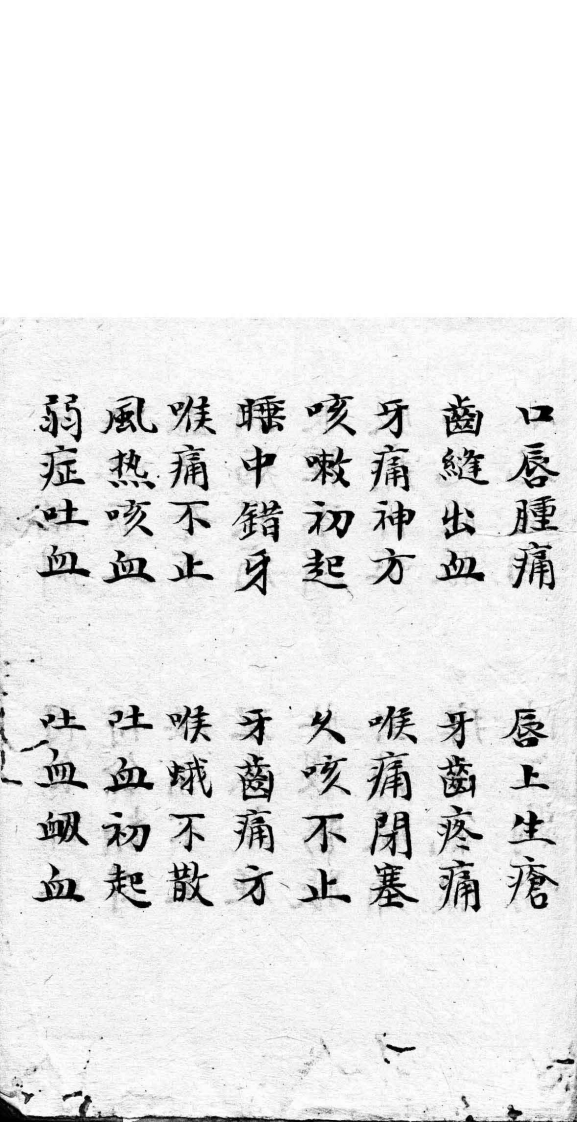 口唇腫痛
唇上生瘡
齒縫出血
牙齒疼痛
牙痛神方
喉痛閉塞
咳嗽初起
久咳不止
睡中錯牙
牙齒痛方
喉痛不止
喉蛾不散
風热咳血
吐血初起
弱症吐血
吐血衂血